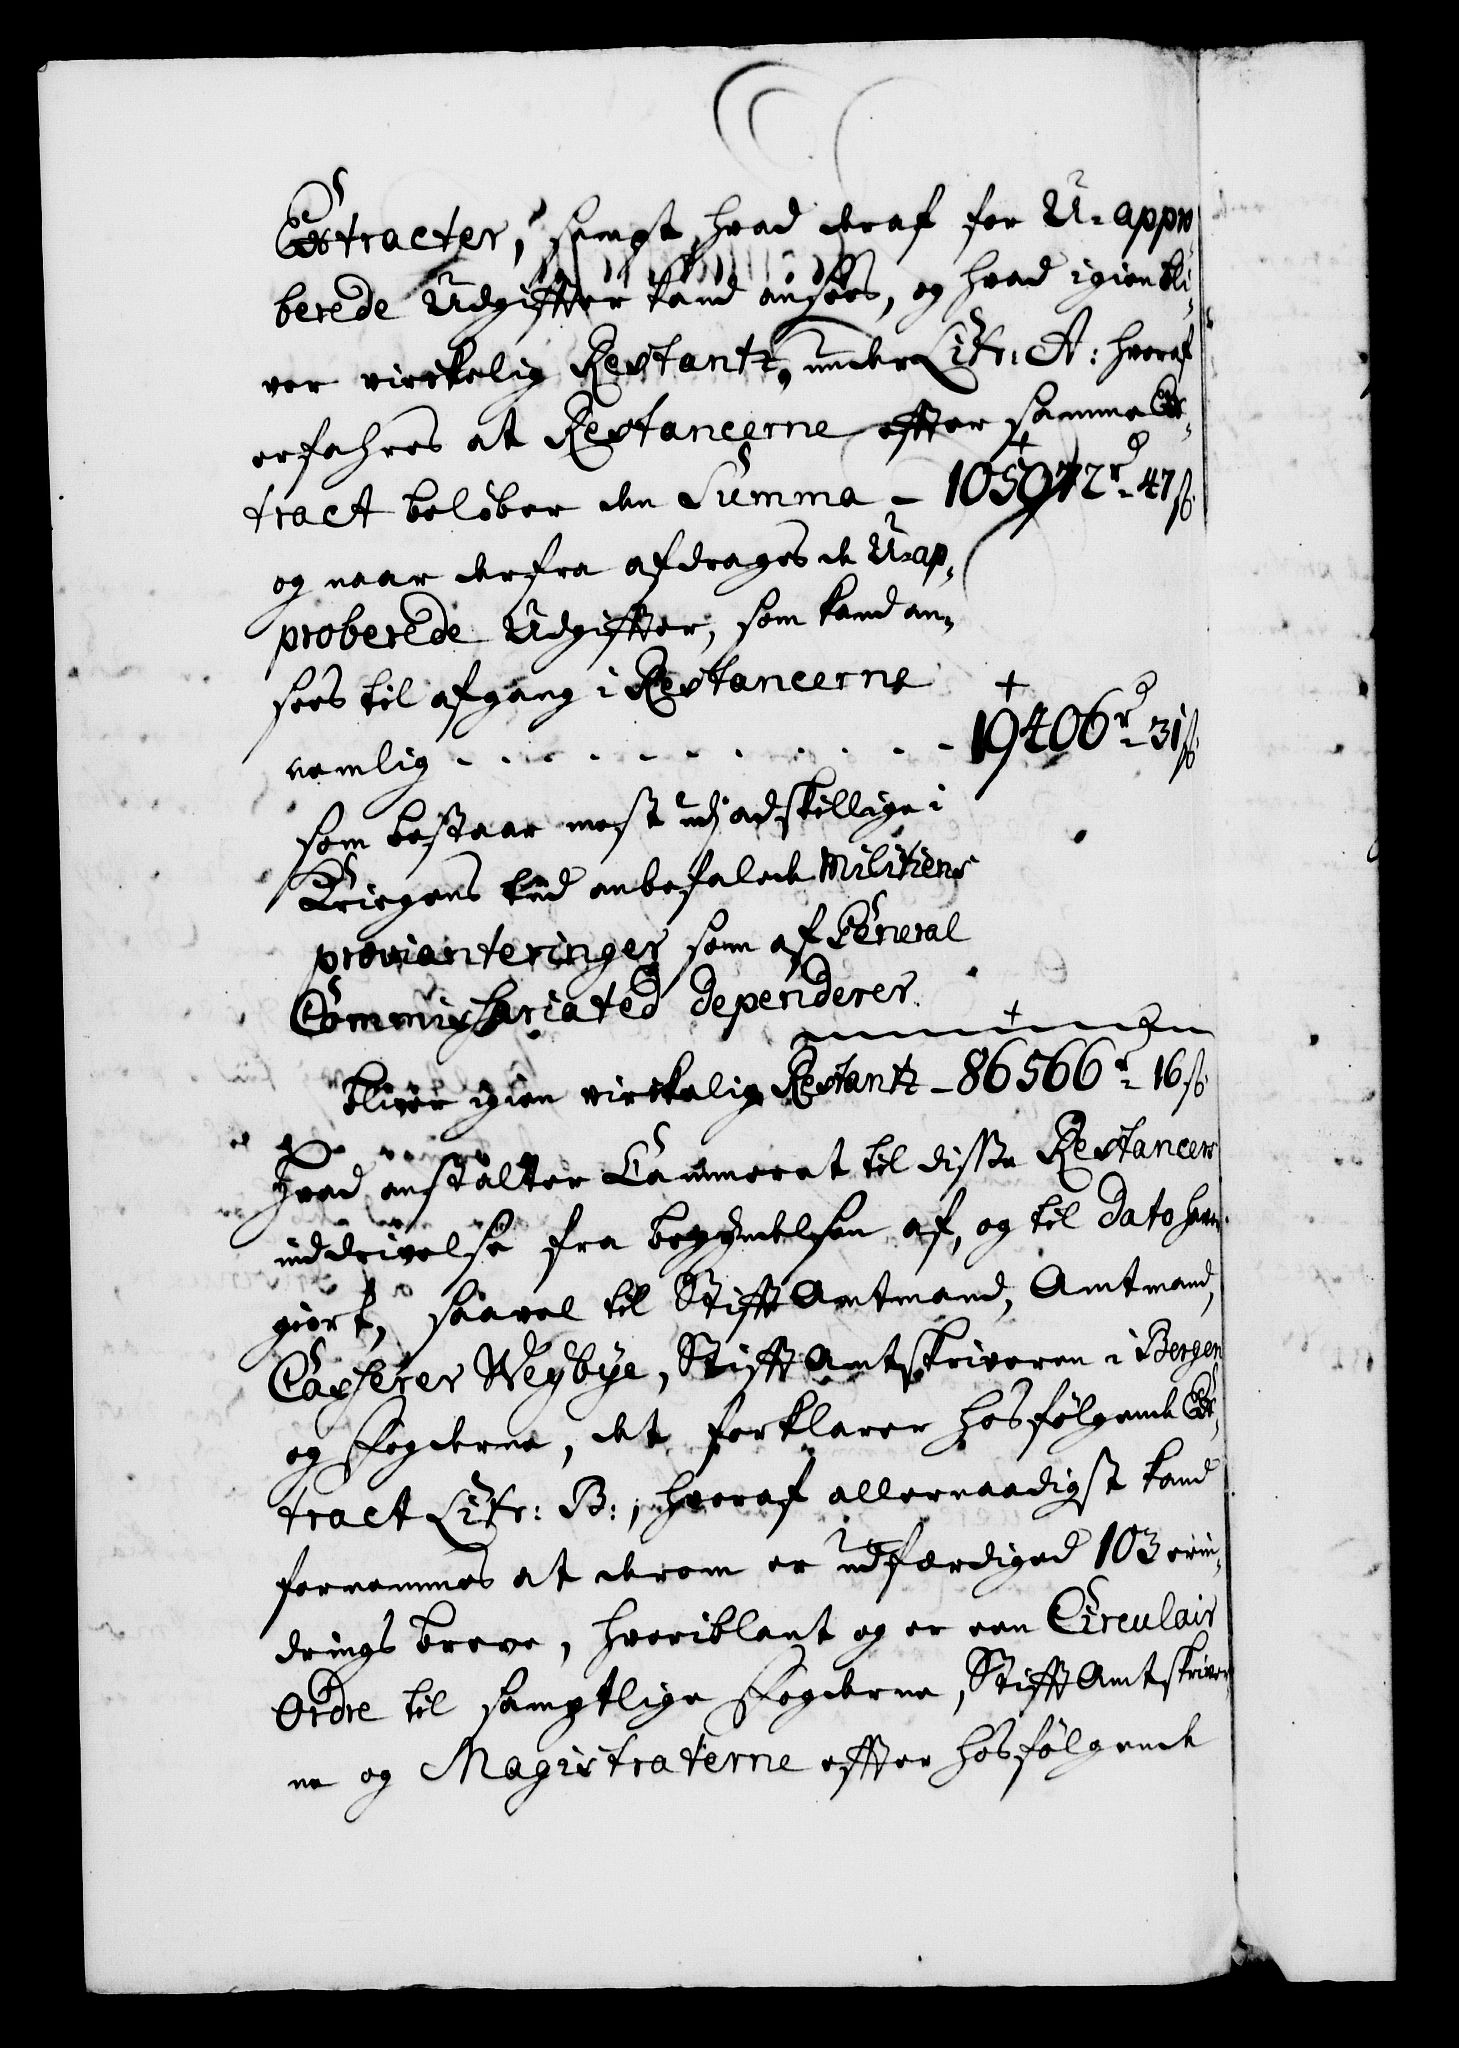 Extracter, sampt hvad deraf for U-appro
berede Udgiffter kand ansees, og hvad igien bli-
ver virkelig Restantz, under Litr: A: hvoraf
erfahres at Restancerne effter samme Ex-
tract beløber den Summa - 105972 rd - 47 ß
og naar derfra afdrages de U-ap-
proberede Udgiffter, som kand an-
sees til afgang i Restancerne
nemlig - - - - - - - - - - 19406 rd - 31 ß
som bestaar mest udj adskillige i
Kriegens tid anbefalede Militiens
provianteringer som af General
Commissariatet dependerer.
bliver igien virkelig Restantz - 86566 rd - 16 ß
Hvad anstalter Cammeret til disse Restancers
inddrivelse fra begyndelsen af, og til dato haver
giort, saavel til Stifft Amtmand, Amtmand,
Casserer Weybye, Stifft Amtskriveren i Bergen
og Fogderne, det forklarer hosfølgende Ex-
tract Litr: B:, hvoraf allernaadigst kand
fornemmes at derom er udferdiged 103 erin-
drings breve, hvoriblant og er een Circulair
Ordre til samptlige Fogderne, Stifft Amtskriver
ne og Magistraterne effter hosfølgende